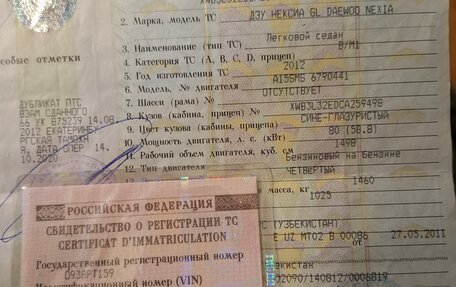 2. Марка, модель ТС ДЭУ НЕКСИА GL DAEWOO NEXIA
Легковой седан
3. Наименование (тип ТС)
В/М1
4. Категория ТС (А, В, С, D, прицеп)
2012
5. Год изготовления ТС
A15SMS 679044I
6. Модель, № двигателя
ОТСУТСТВУЕТ
7. Шасси (рама) №
XWB3L32EDCA259498
8. Кузов (кабина, прицеп) №
СИНЕ-ГЛАЗУРИСТЫЙ
9. Цвет кузова (кабины, прицепа)
80 (58.8)
10. Мощность двигателя, л. с. (кВт)
1498
11. Рабочий объем двигателя, куб. см
Бензиновый на Бензине
12. Тип двигателя
ЧЕТВЕРТЫЙ
1460
масса, кг
1025
собые отметки
ДУБЛИКАТ ПТС
ВЗАМ СДАННОГО
66 УК 875239 14.08
2012 ЕКАТЕРИНБУ
РГСКАЯ ТАМОЖН
Я, ДАТА ОПЕР 14.
10.2020
(УЗБЕКИСТАН)
UZ MT02 B 00086 ОТ 27.05.2011
екистан
02090/140812/0006819
РОССИЙСКАЯ ФЕДЕРАЦИЯ
СВИДЕТЕЛЬСТВО О РЕГИСТРАЦИИ ТС
CERTIFICAT D'IMMATRICULATION
Государственный регистрационный номер
О938РТ159
Идентификационный номер (VIN)